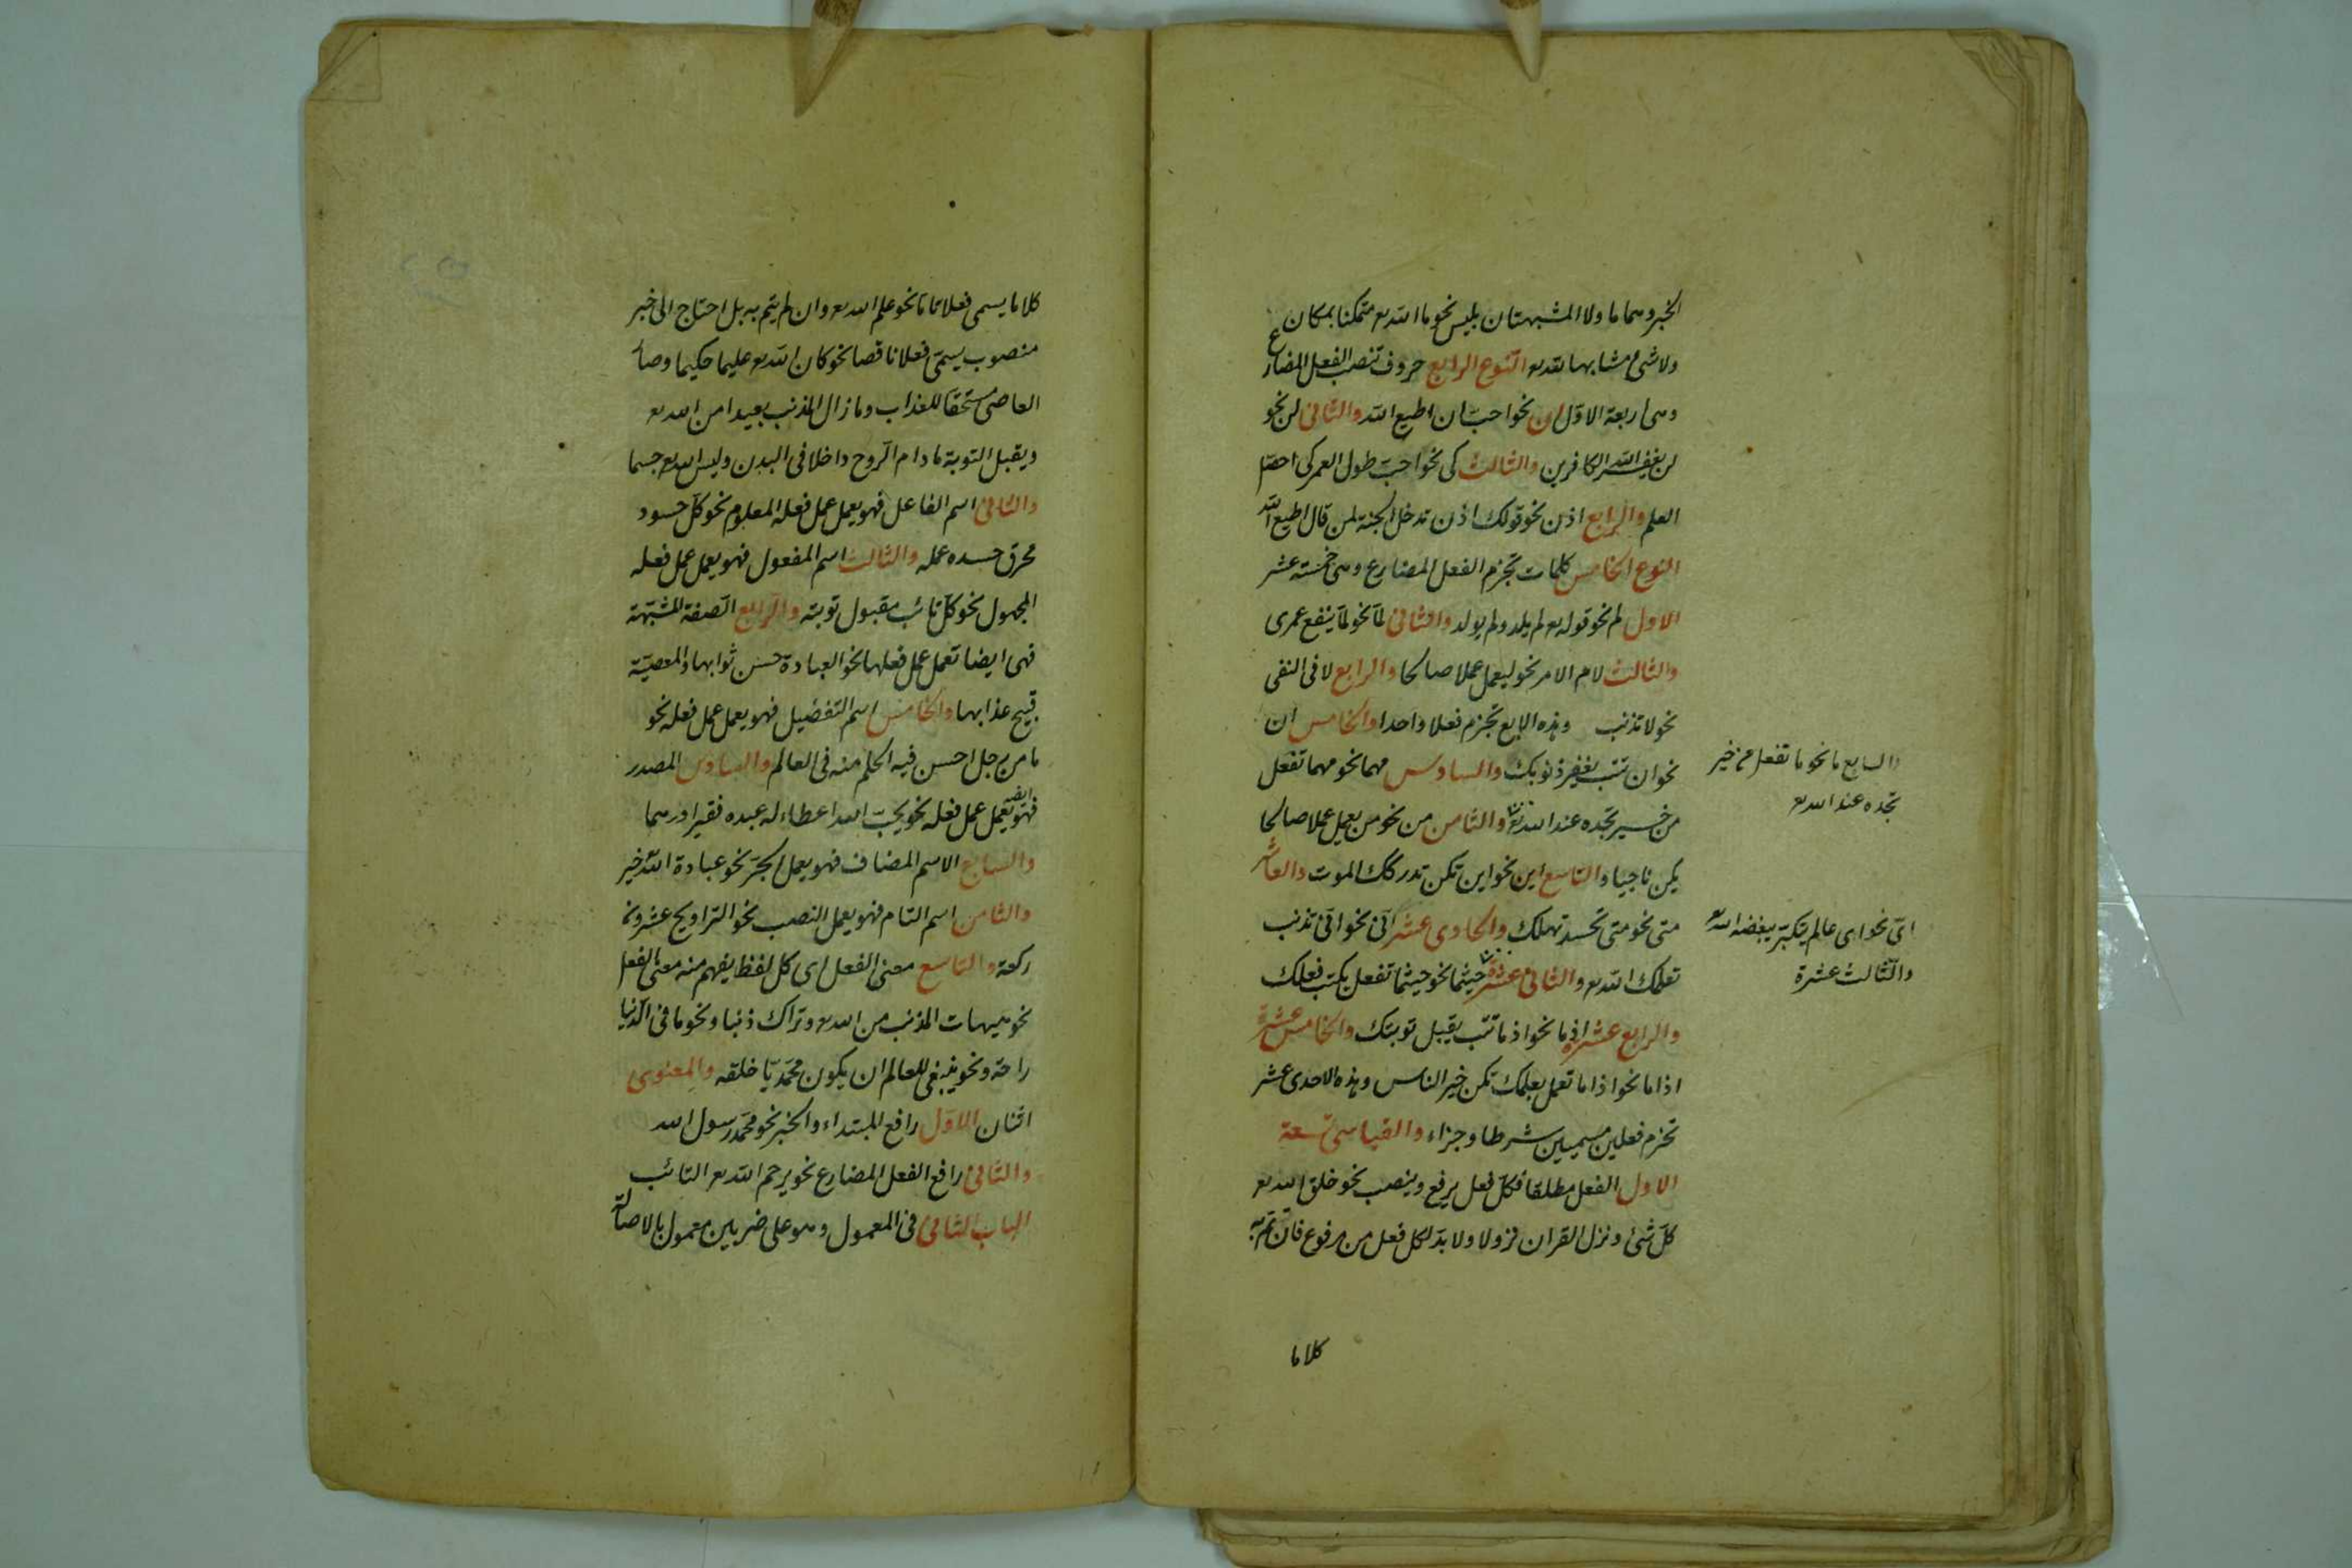 الخبر وهما ما ولا المشبهتان بليس نحو ما الله تع متمكنا بمكان
ولا شئ مشابها لله تع النوع الرابع حروف تنصب الفعل المضارع
وهى اربعة الاول ان نحو احب ان اطيع الله والثانى لن نحو
لن يغفر الله الكافرين والثالث كى نحو احب طول العمر كى احصل
العلم والرابع اذن نحو قولك اذن تدخل الجنة لمن قال اطيع الله
النوع الخامس كلمات تجزم الفعل المضارع وهى خمسة عشر
الاول لم نحو قوله تع لم يلد ولم يولد والثانى لما نحو لما ينفع عمرى
والثالث لام الامر نحو ليعمل عملا صالحا والرابع لا فى النفى
نحو لا تذنب وهذه الاربع تجزم فعلا واحدا والخامس ان
نحو ان تتب يغفر ذنوبك والسادس مهما نحو مهما تفعل
والسابع ما نحو ما تفعل من خير
تجده عند الله تع
من خير تجده عند الله تع والثامن من نحو من يعمل عملا صالحا
يكن ناجيا والتاسع اين نحو اين تكن تدركك الموت والعاشر
متى نحو متى تحسد تهلك والحادى عشر انى نحو انى تذنب
اى نحو اى عالم يتكبر يبغضه الله
والثالث عشرة
تعلمك الله تع والثانى عشرة حيثما نحو حيثما تفعل يكتب فعلك
والرابع عشرة اذ ما نحو اذ ما تتب يقبل توبتك والخامس عشرة
اذا ما نحو اذا ما تعمل بعلمك تكن خير الناس وهذه الاحدى عشر
تجزم فعلين مسميين شرطا وجزاء والقياسى تسعة
الاول الفعل مطلقا فكل فعل يرفع وينصب نحو خلق الله تع
كل شئ ونزل القران نزولا ولا بد لكل فعل من مرفوع فان تم به
كلاما
كلاما يسمى فعلا تاما نحو علم الله تع وان لم يتم به بل احتاج الى خبر
منصوب يسمى فعلا ناقصا نحو كان الله تع عليما حكيما وصار
العاصى مستحقا للعذاب وما زال المذنب بعيدا من الله تع
ويقبل التوبة ما دام الروح داخلا فى البدن وليس الله تع جسما
والثانى اسم الفاعل فهو يعمل عمل فعله المعلوم نحو كل حسود
محرق حسده عمله والثالث اسم المفعول فهو يعمل عمل فعله
المجهول نحو كل تائب مقبول توبته والرابع الصفة المشبهة
فهى ايضا تعمل عمل فعلها نحو العبادة حسن ثوابها والمعصية
قبيح عذابها والخامس اسم التفضيل فهو يعمل عمل فعله نحو
ما من رجل احسن فيه الحلم منه فى العالم والسادس المصدر
فهو ايضا يعمل عمل فعله نحو يحب الله اعطاء له عبده فقيرا درهما
والسابع الاسم المضاف فهو يعمل الجر نحو عبادة الله خير
والثامن اسم التام فهو يعمل النصب نحو التراويح عشرون
ركعة والتاسع معنى الفعل اى كل لفظ يفهم منه معنى الفعل
نحو هيهات المذنب من الله تع وتراك ذنبا ونحو ما فى الدنيا
راحة ونحو ينبغى للعالم ان يكون محمديا خلقه والمعنوى
اثنان الاول رافع المبتداء والخبر نحو محمد رسول الله
والثانى رافع الفعل المضارع نحو يرحم الله تع التائب
الباب الثانى فى المعمول وهو على ضربين معمول بالاصالة